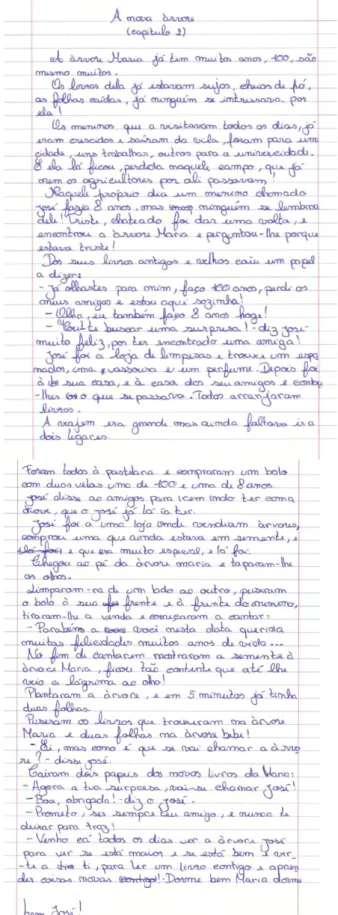 A nova árvore
(capítulo 2)
A árvore Maria já tem muitos anos, 100, são
mesmo muitos.
Os livros dela já estavam sujos, cheios de pó,
as folhas caídas, já ninguém se intressava por
ela!
Os meninos que a visitavam todos os dias, já
eram crescidos e saíram da vila, foram para uma
cidade, uns trabalhar, outros para a universidade.
E ela lá ficou, perdida naquele campo, que já
nem os agricultores por ali passavam,
Naquele próprio dia um menino chamado
josé fazia 8 anos. mas ninguém se lembrou
dele! Triste, chateado foi dar uma volta, e
encontrou a árvore Maria e perguntou-lhe porque
estava triste!
Dos seus livros antigos e velhos caiu um papel
a dizer:
- Já olhastes para mim, faço 100 anos, perdi os
meus amigos e estou aqui sozinha!
- Olha, eu também faço 8 anos hoje!
- Vou te buscar uma surpresa! - diz josé
muito feliz, por ter encontrado uma amiga!
José foi à loja de limpezas e trouxe um espa
nador, uma vassoura e um perfume. Depois foi
à sua casa, e à casa dos seu amigos e contou
-lhes o que se passava. Todos arranjaram
livros.
A viajem era grande mas ainda faltava ir a
dois lugares.
Foram todos à pastelaria e compraram um bolo
com duas velas uma de 100 e uma de 8 anos.
josé disse ao amigos para irem indo ter com a
árvore, que o josé já lá ia ter.
José foi a uma loja onde vendiam árvores,
comprou uma que ainda estava em semente, e
e que era muito especial, e lá foi.
Chegou ao pé da árvore maria e taparam-lhe
os olhos.
Limparam-na de um lado ao outro, puseram
o bolo à sua frente e à frente do menino,
tiraram-lhe a venda e começaram a cantar:
- Parabéns a você nesta data querida
muitas felicidades muitos anos de vida...
No fim de cantarem mostraram a semente à
árvore Maria, ficou tão contente que até lhe
veio a lágrima ao olho!
Plantaram a árvore, e em 5 minutos já tinha
duas folhas.
Puseram os livros que trouxeram na árvore
Maria e duas folhas na árvore bebé!
- Ei, mas como é que se vai chamar a árvo
re? - disse josé.
Cairam dois papeis dos novos livros da Maria:
- Agora a tua surpresa, vai-se chamar José!
- Boa, obrigado! - diz o josé.
- Prometo, ser sempre teu amigo, e nunca te
deixar para traz!
- Venho cá todos os dias ver a árvore josé
para ver se está maior e se está bem e ver-
-te a ti, para ler um livro contigo e apren
der coisas novas! Dorme bem Maria dorme
bem José!